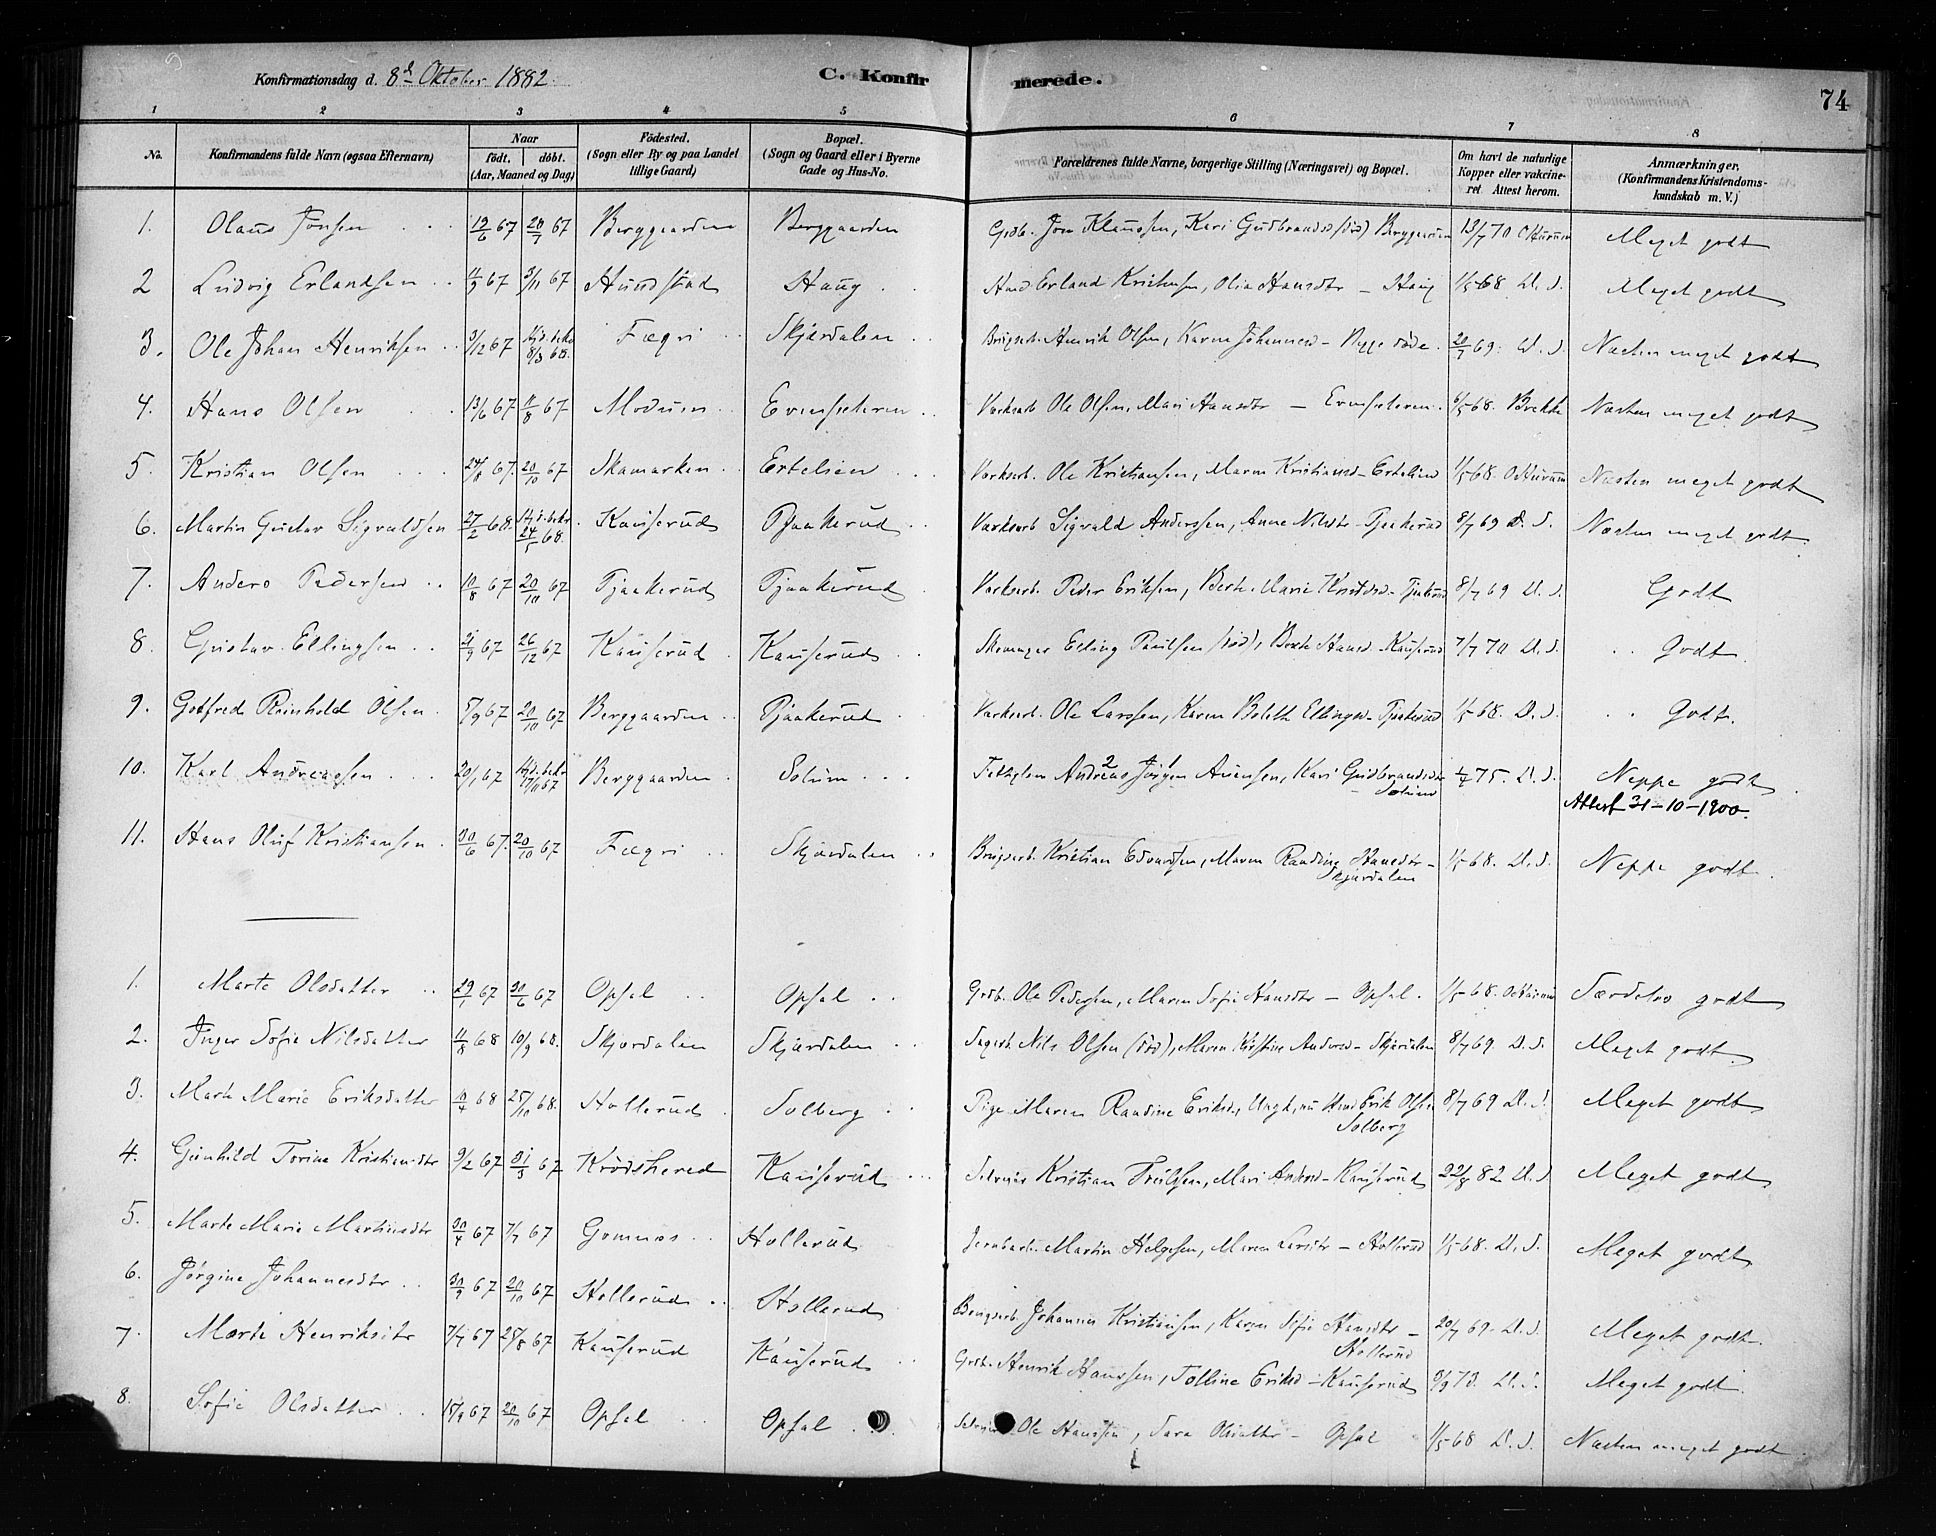 Konfirmationsdag d. 8de Oktober 1882. C. Konfirmerede. 74
1 2 3 4 5 6 7 8
No. Konfirmandens fulde Navn (ogsaa Efternavn) Naar født. døbt. (Aar, Maaned og Dag) Fødested. (Sogn eller By og paa Landet tillige Gaard) Bopæl. (Sogn og Gaard eller i Byerne Gade og Hus-No. Forældrenes fulde Navne, borgerlige Stilling (Næringsvei) og Bopæl. Om havt de naturlige Kopper eller vakcineret. Attest herom. Anmærkninger, (Konfirmandens Kristendomskundskab m. V.)
1. Olaus Jonsen 12/6 67 20/7 67 Berggaarden Berggaarden Grdb. Jon Klaussen, Kari Gudbrandsd (død) Berggaarden 13/7 70 Meget godt
2 Ludvig Erlandsen 11/9 67 3/11 67 Hundstad Haug Hmd Erland Kristensen, Olia Hansdtr – Haug 1/5 68 D. S. Meget godt
3. Ole Johan Henriksen 3/12 67 Hjd. bekr 8/3 68. Fægri Skjærdalen Brugsarb. Henrik Olsen, Karen Johannesd – 20/7 69. D. S. Næsten meget godt
4. Hans Olsen 13/6 67. 11/8 67 Modum Evensæteren Værksarb Ole Olsen, Mari Hansdtr – Evensæteren. 6/5 68. Brekke Næsten meget godt
5. Kristian Olsen 24/8 67. 20/10 67 Skamarken Ertelien Værksarb. Ole Kristiansen, Maren Kristiansd – Ertelien 1/5 68. Næsten meget godt
6. Martin Gustav Sigvaldsen 27/2 68. Hjd. bekr. 24/5 68. Kauserud Tjaakerud Værksarb Sigvald Anderssen, Anne Nilsdtr – Tjaakerud 8/7 69 D. S. Næsten meget godt.
7. Anders Pedersen 10/8 67 20/10 67 Tjaakerud Tjaakerud Værksarb. Peder Eriksen, Berte Marie Knudsd – Tjaakerud 8/7 69 D. S. Godt
8. Gustav Ellingsen 21/9 67 26/12 67 Kauserud Kauserud Elling Paulsen (død), Berte Hansd – Kauserud 7/7 70 D. S. Godt.
9. Gotfred Reinhold Olsen 5/9 67 20/10 67 Berggaarden Tjaakerud Værksarb. Ole Larssen, Karen Bolette Ellingsd – Tjaakerud 1/5 68. D. S. Godt.
10. Karl Andreassen 20/1 67 Hjd. bekr 17/11 67 Berggaarden Solum Fattiglem Andreas Jörgen Auensen, Kari Gudbrandsdtr 1/4 75. D. S. Neppe godt
– Solum Attest 31-10-1900.
11. Hans Oluf Kristiansen 30/6 67. 20/10 67 Fægri Skjærdalen Brugsarb. Kristian Edvardsen, Maren Randine Hansdtr – 1/5 68. D. S. Neppe godt.
Skjærdalen
1. Marte Olsdatter 29/1 67 30/6 67 Opsal Opsal Grdb. Ole Pedersen, Maren Sofie Hansdtr – Opsal. 1/5 68. Særdeles godt
2. Inger Sofie Nilsdatter 11/8 68 10/9 68. Skjærdalen Skjærdalen Sagarb. Nils Olsen (død), Maren Kirstine Andersd – Skjærdalen 8/7 69. D. S. Meget godt.
3. Marte Marie Eriksdatter 10/4 68 25/10 68. Hollerud Solberg Pige Maren Randine Eriksd, Ungk, nu Hmd Erik Olsen 8/7 69 D. S. Meget godt
Solberg
4. Gunhild Torine Kristiansdtr 9/2 67 31/3 67 Krødsherred Kauserud Selveier Kristian Trulssen, Mari Andersd – Kauserud 22/8 82 D. S. Meget godt
5. Marte Marie Martinsdtr 30/4 67 7/7 67 Gomnes Hollerud Martin Helgesen, Maren Larsdtr – Hollerud 1/5 68. D. S. Meget godt
6. Jørgine Johannesdtr 30/9 67 20/10 67 Hollerud Hollerud Brugsarb. Johannes Kristiansen, Karen Sofie Hansdtr – 20/7 69. D. S. Meget godt.
Hollerud
7. Marte Henriksdtr 7/7 67 25/8 67 Kauserud Kauserud Grdb. Henrik Hanssen, Tolline Eriksd – Kauserud 9/9 73. D. S. Meget godt.
8. Sofie Olsdatter 15/9 67 20/10 67 Opsal Opsal Selveier Ole Hanssen, Sara Olsdatter – Opsal 1/5 68 D. S. Næsten meget godt.